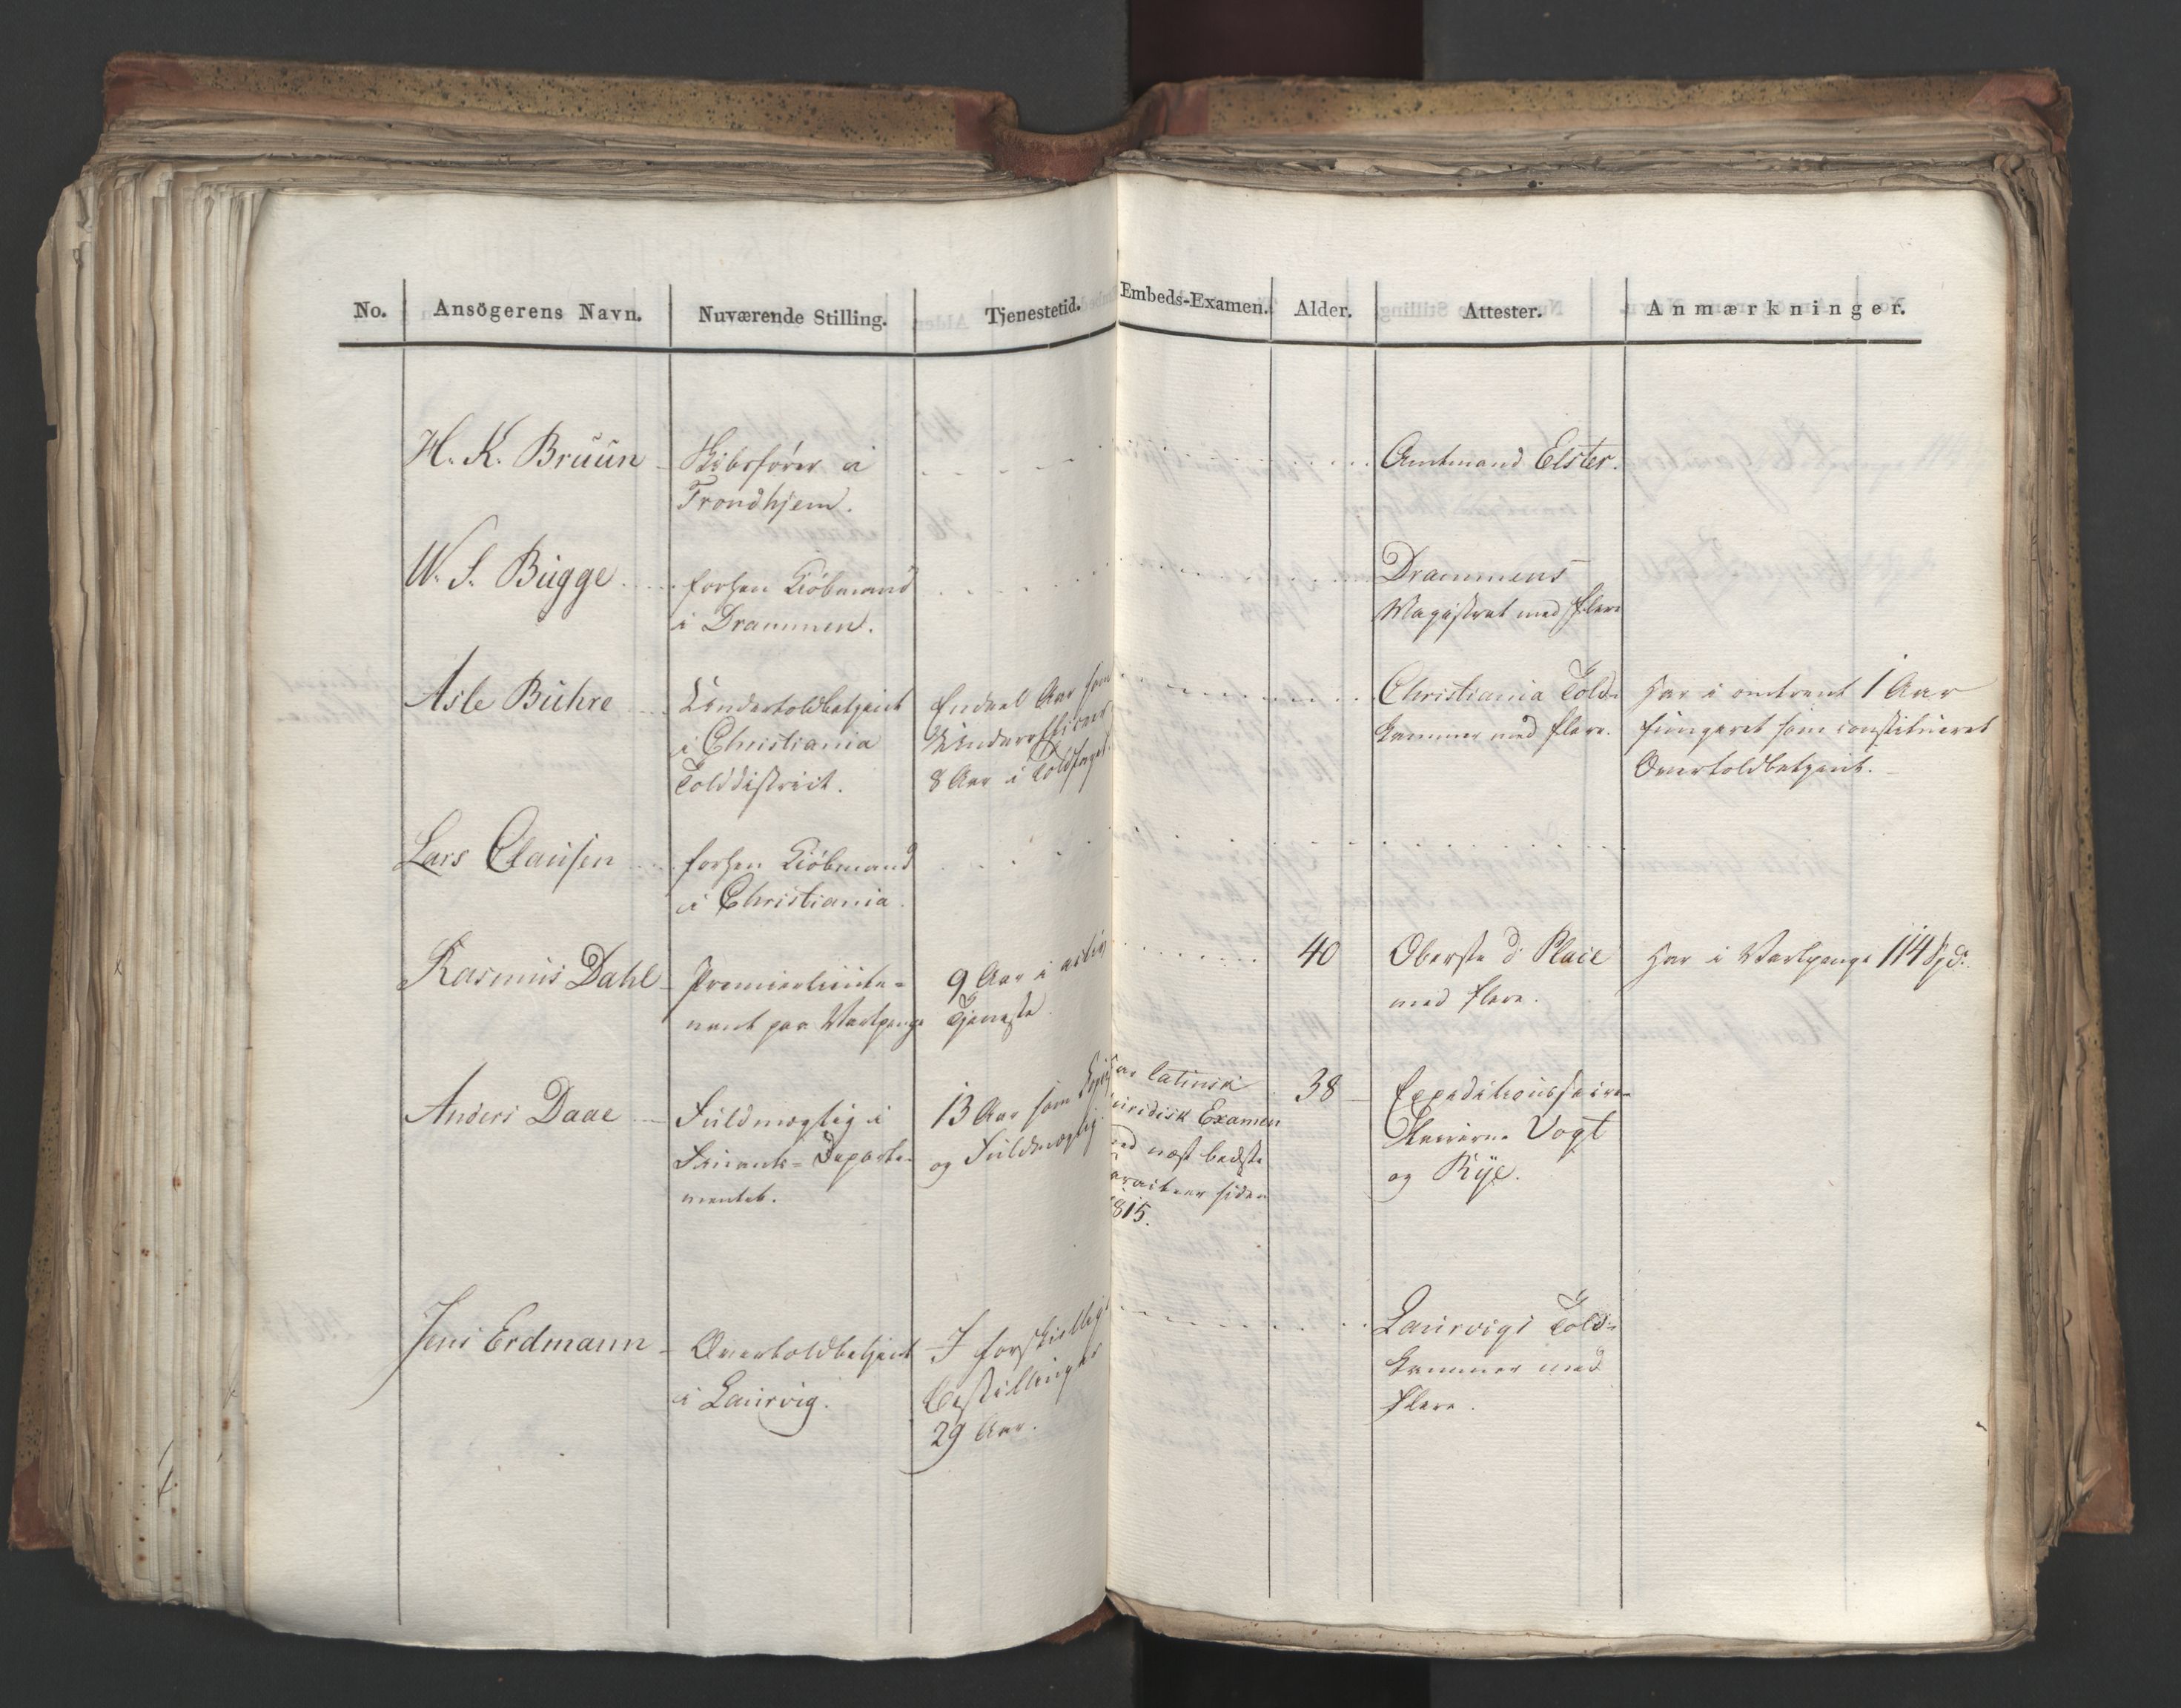 No. Ansögerens Navn. Nuværende Stilling. Tjenestetid. Embeds-Examen. Alder. Attester. Anmærkninger.
H. K. Bruun Skibsfører i Amtmand Elster.
Trondhjem.
W. S. Bugge forhen Kiöbmand Drammens
i Drammen. Magistrat med flere
Asle Buhre Undertoldbetjent Endeel Aar som Christiania Told- Har i omtrent 1 Aar
i Christiania Underofficier kammer med flere. fungeret som constitueret
Tolddistrict. 8 Aar i Toldfaget. Overtoldbetjent.
Lars Clausen forhen Kiöbmand
i Christiania.
Rasmus Dahl Premierlieute- 9 Aar i activ 40 Oberste d: Place Har i Vartpenge 114 Spd.
nant paa Vartpenge Tjeneste. med flere.
Anders Daae Fuldmægtig i 13 Aar som latinsk 38 Expeditionssecre-
Finants-Departe- og Fuldmægtig. Examen tairerne Vogt
mentet. næst bedste og Rye.
siden
1815.
Jens Erdmann Overtoldbetjent I forskiellige Laurvigs Told-
i Laurvig. Bestillinger kammer med
29 Aar. flere.